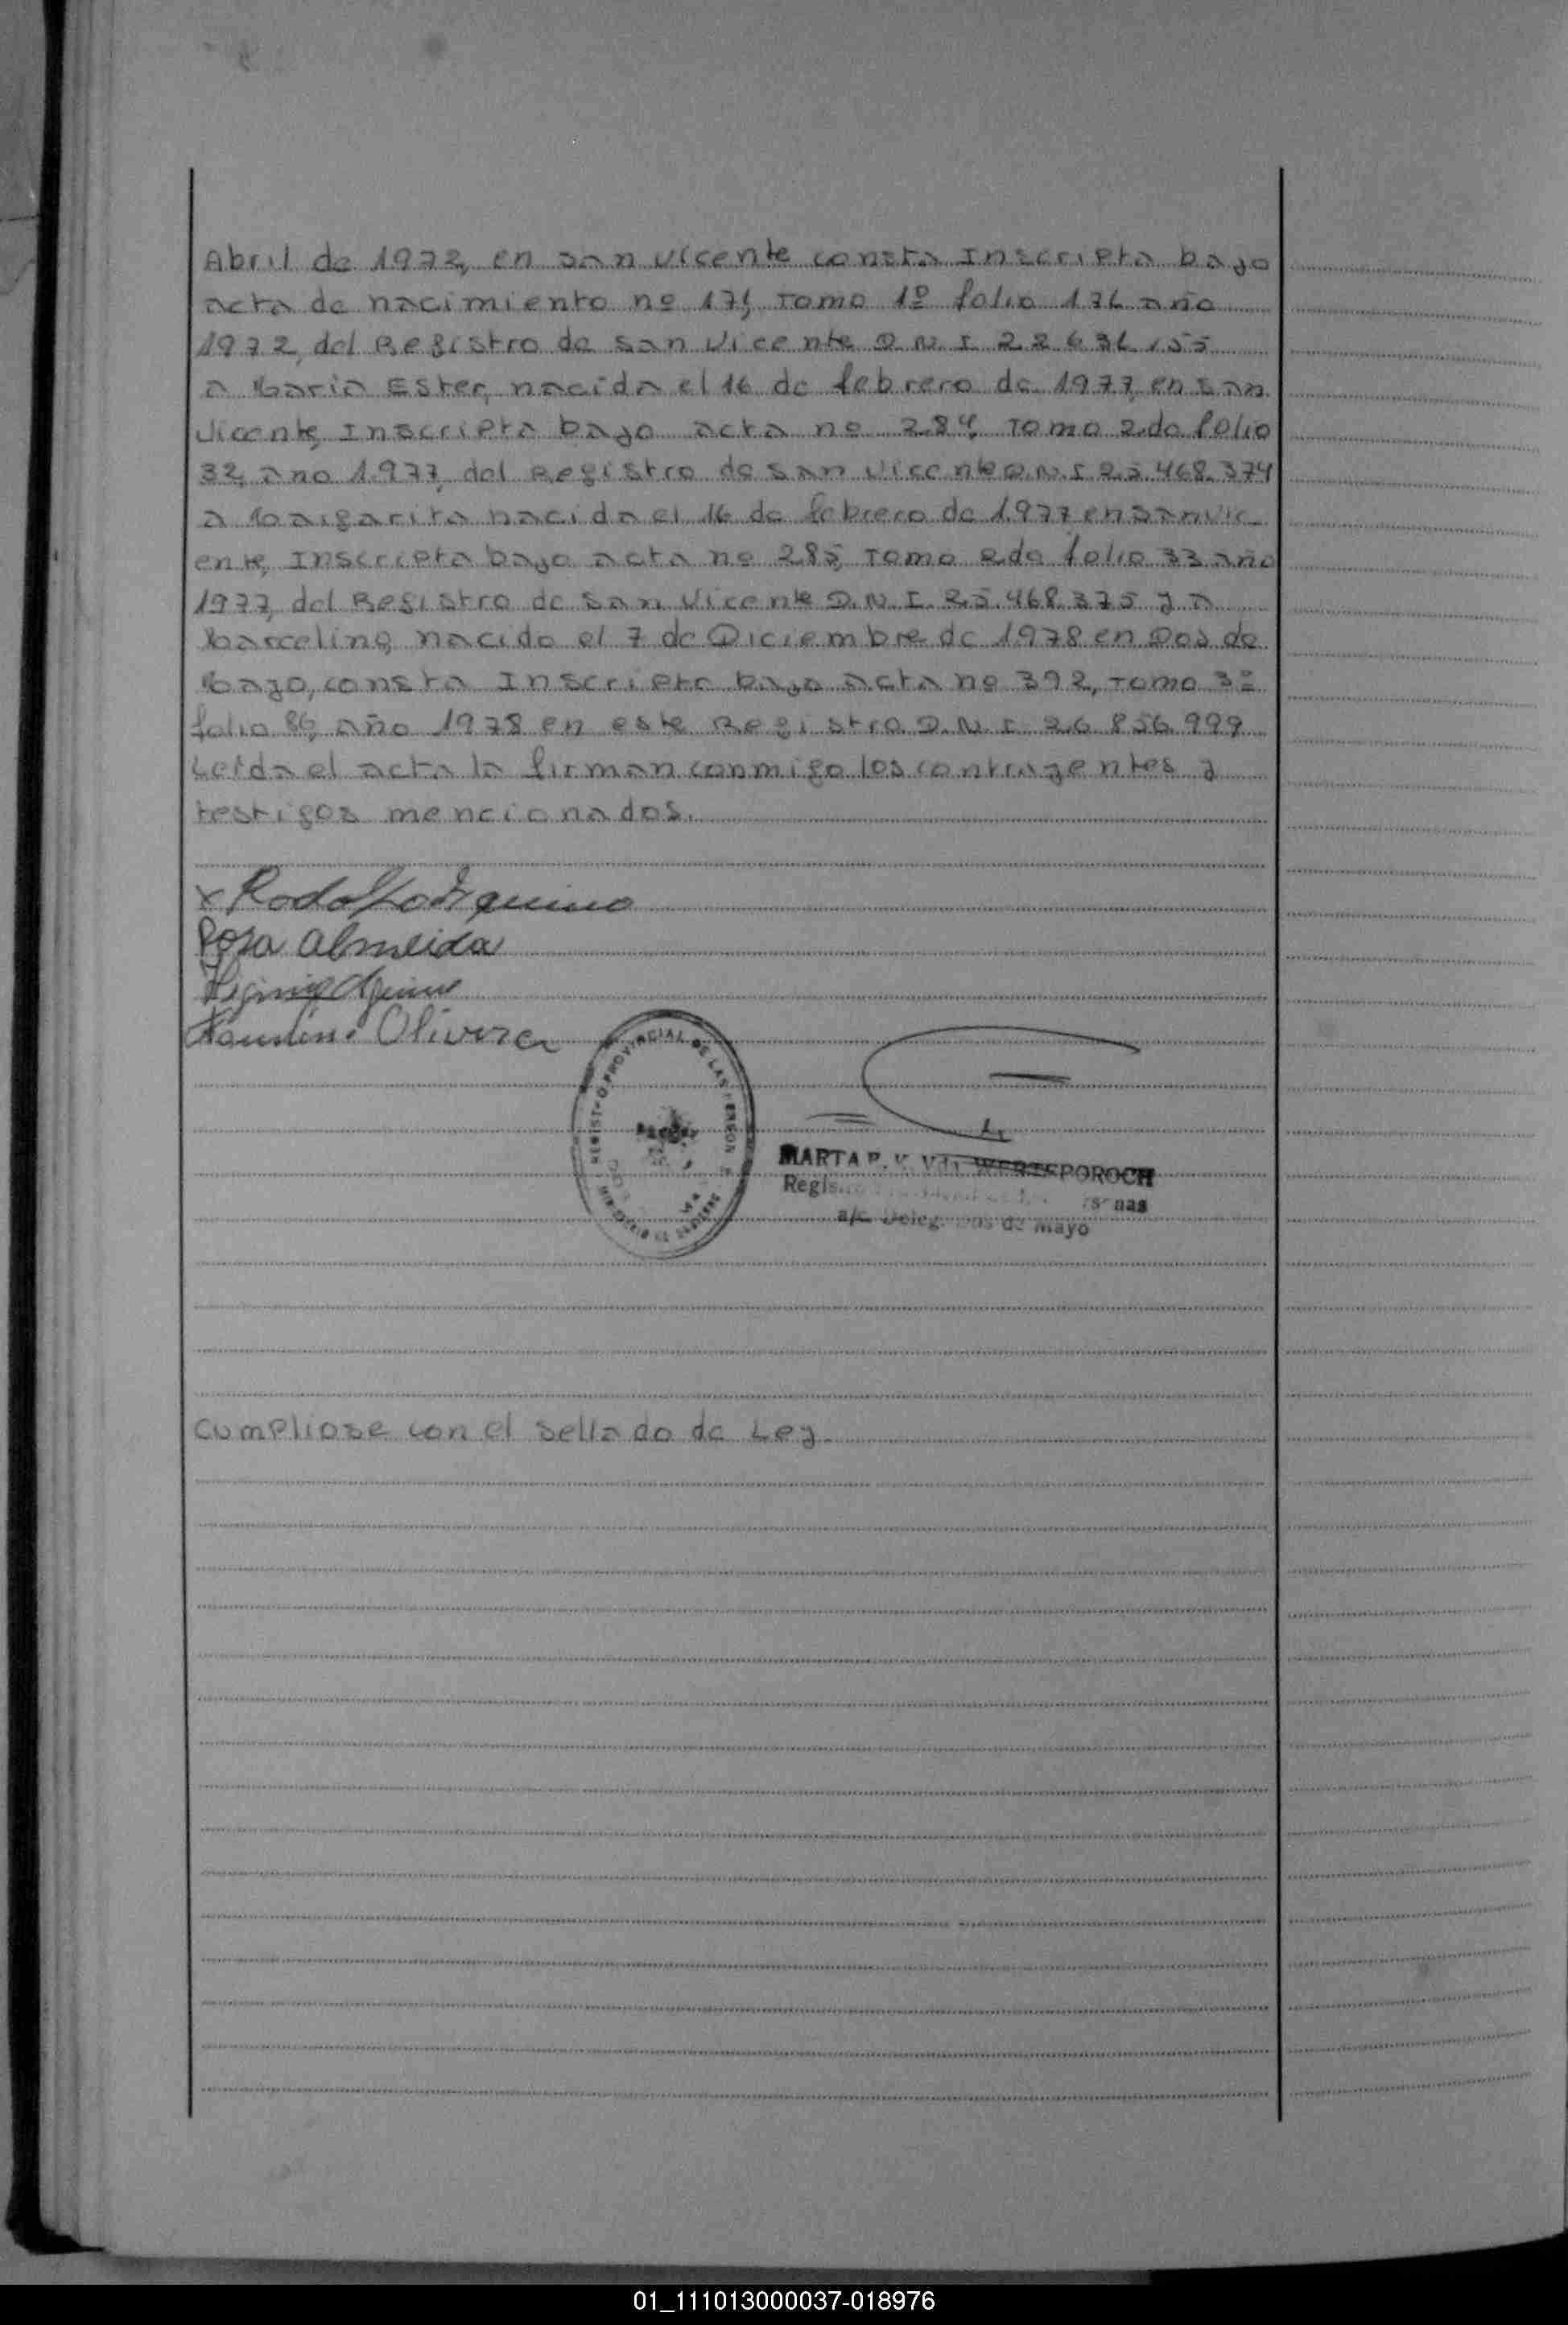 Abril de 1972, en San Vicente consta Inscripta bajo
acta de nacimiento nº 171, Tomo 1º folio 176 año
1972, del Registro de San Vicente D.N.I. 22.6
a Maria Ester, nacida el 16 de febrero de 1977, en San
Vicente, Inscripta bajo acta nº 284, Tomo 2do folio
32, año 1977, del Registro de San Vicente D.N.I. 25.468.374
a Margarita nacida el 16 de febrero de 1977 en San Vic
ente, Inscripta bajo acta nº 285, Tomo 2do folio 33 año
1977, del Registro de San Vicente D.N.I. 25.468.375 y a
Marcelino, nacido el 7 de Diciembre de 1978 en Dos de
Mayo, consta Inscripto bajo acta nº 392, Tomo 3º
folio 86, año 1978 en este Registro D.N.I. 26.856.999
Leída el acta la firman conmigo los contrayentes y
testigos mencionados.
x Rodolfo Aquino
Rosa Almeida
Higinio Aquino
Faustino Olivera
REGISTRO PROVINCIAL DE LAS PERSONAS
MARTA
a/c Deleg. Dos de Mayo
Cumpliose con el sellado de Ley.
01_111013000037-018976